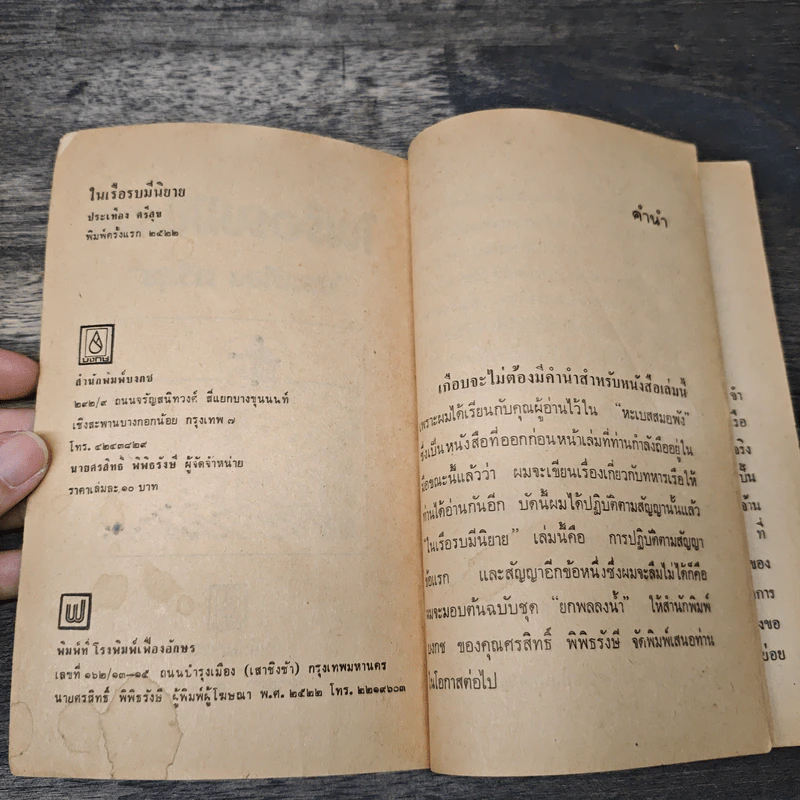 ในเรือรบมีนิยาย
ประเทือง ศรีสุข
พิมพ์ครั้งแรก ๒๕๒๒
บงกช
สำนักพิมพ์บงกช
๒๙๒/๙ ถนนจรัญสนิทวงศ์ สี่แยกบางขุนนนท์
เชิงสะพานบางกอกน้อย กรุงเทพ ๗
โทร. ๔๒๔๓๘๒๙
นายศรสิทธิ์ พิพิธรังษี ผู้จัดจำหน่าย
ราคาเล่มละ ๑๐ บาท
พิมพ์ที่ โรงพิมพ์เฟื่องอักษร
เลขที่ ๑๖๒/๑๓–๑๕ ถนนบำรุงเมือง (เสาชิงช้า) กรุงเทพมหานคร
นายศรสิทธิ์ พิพิธรังษี ผู้พิมพ์ผู้โฆษณา พ.ศ. ๒๕๒๒ โทร. ๒๒๑๙๖๐๓
คำนำ
เกือบจะไม่ต้องมีคำนำสำหรับหนังสือเล่มนี้
เพราะผมได้เรียนกับคุณผู้อ่านไว้ใน "ทะเบสสมอพัง"
ซึ่งเป็นหนังสือที่ออกก่อนหน้าเล่มที่ท่านกำลังถืออยู่ใน
มือขณะนี้แล้วว่า ผมจะเขียนเรื่องเกี่ยวกับทหารเรือให้
ท่านได้อ่านกันอีก บัดนี้ผมได้ปฏิบัติตามสัญญานั้นแล้ว
"ในเรือรบมีนิยาย" เล่มนี้คือ การปฏิบัติตามสัญญา
ข้อแรก และสัญญาอีกข้อหนึ่งซึ่งผมจะลืมไม่ได้ก็คือ
ผมจะมอบต้นฉบับชุด "ยกพลลงน้ำ" ให้สำนักพิมพ์
บงกช ของคุณศรสิทธิ์ พิพิธรังษี จัดพิมพ์เสนอท่าน
ในโอกาสต่อไป